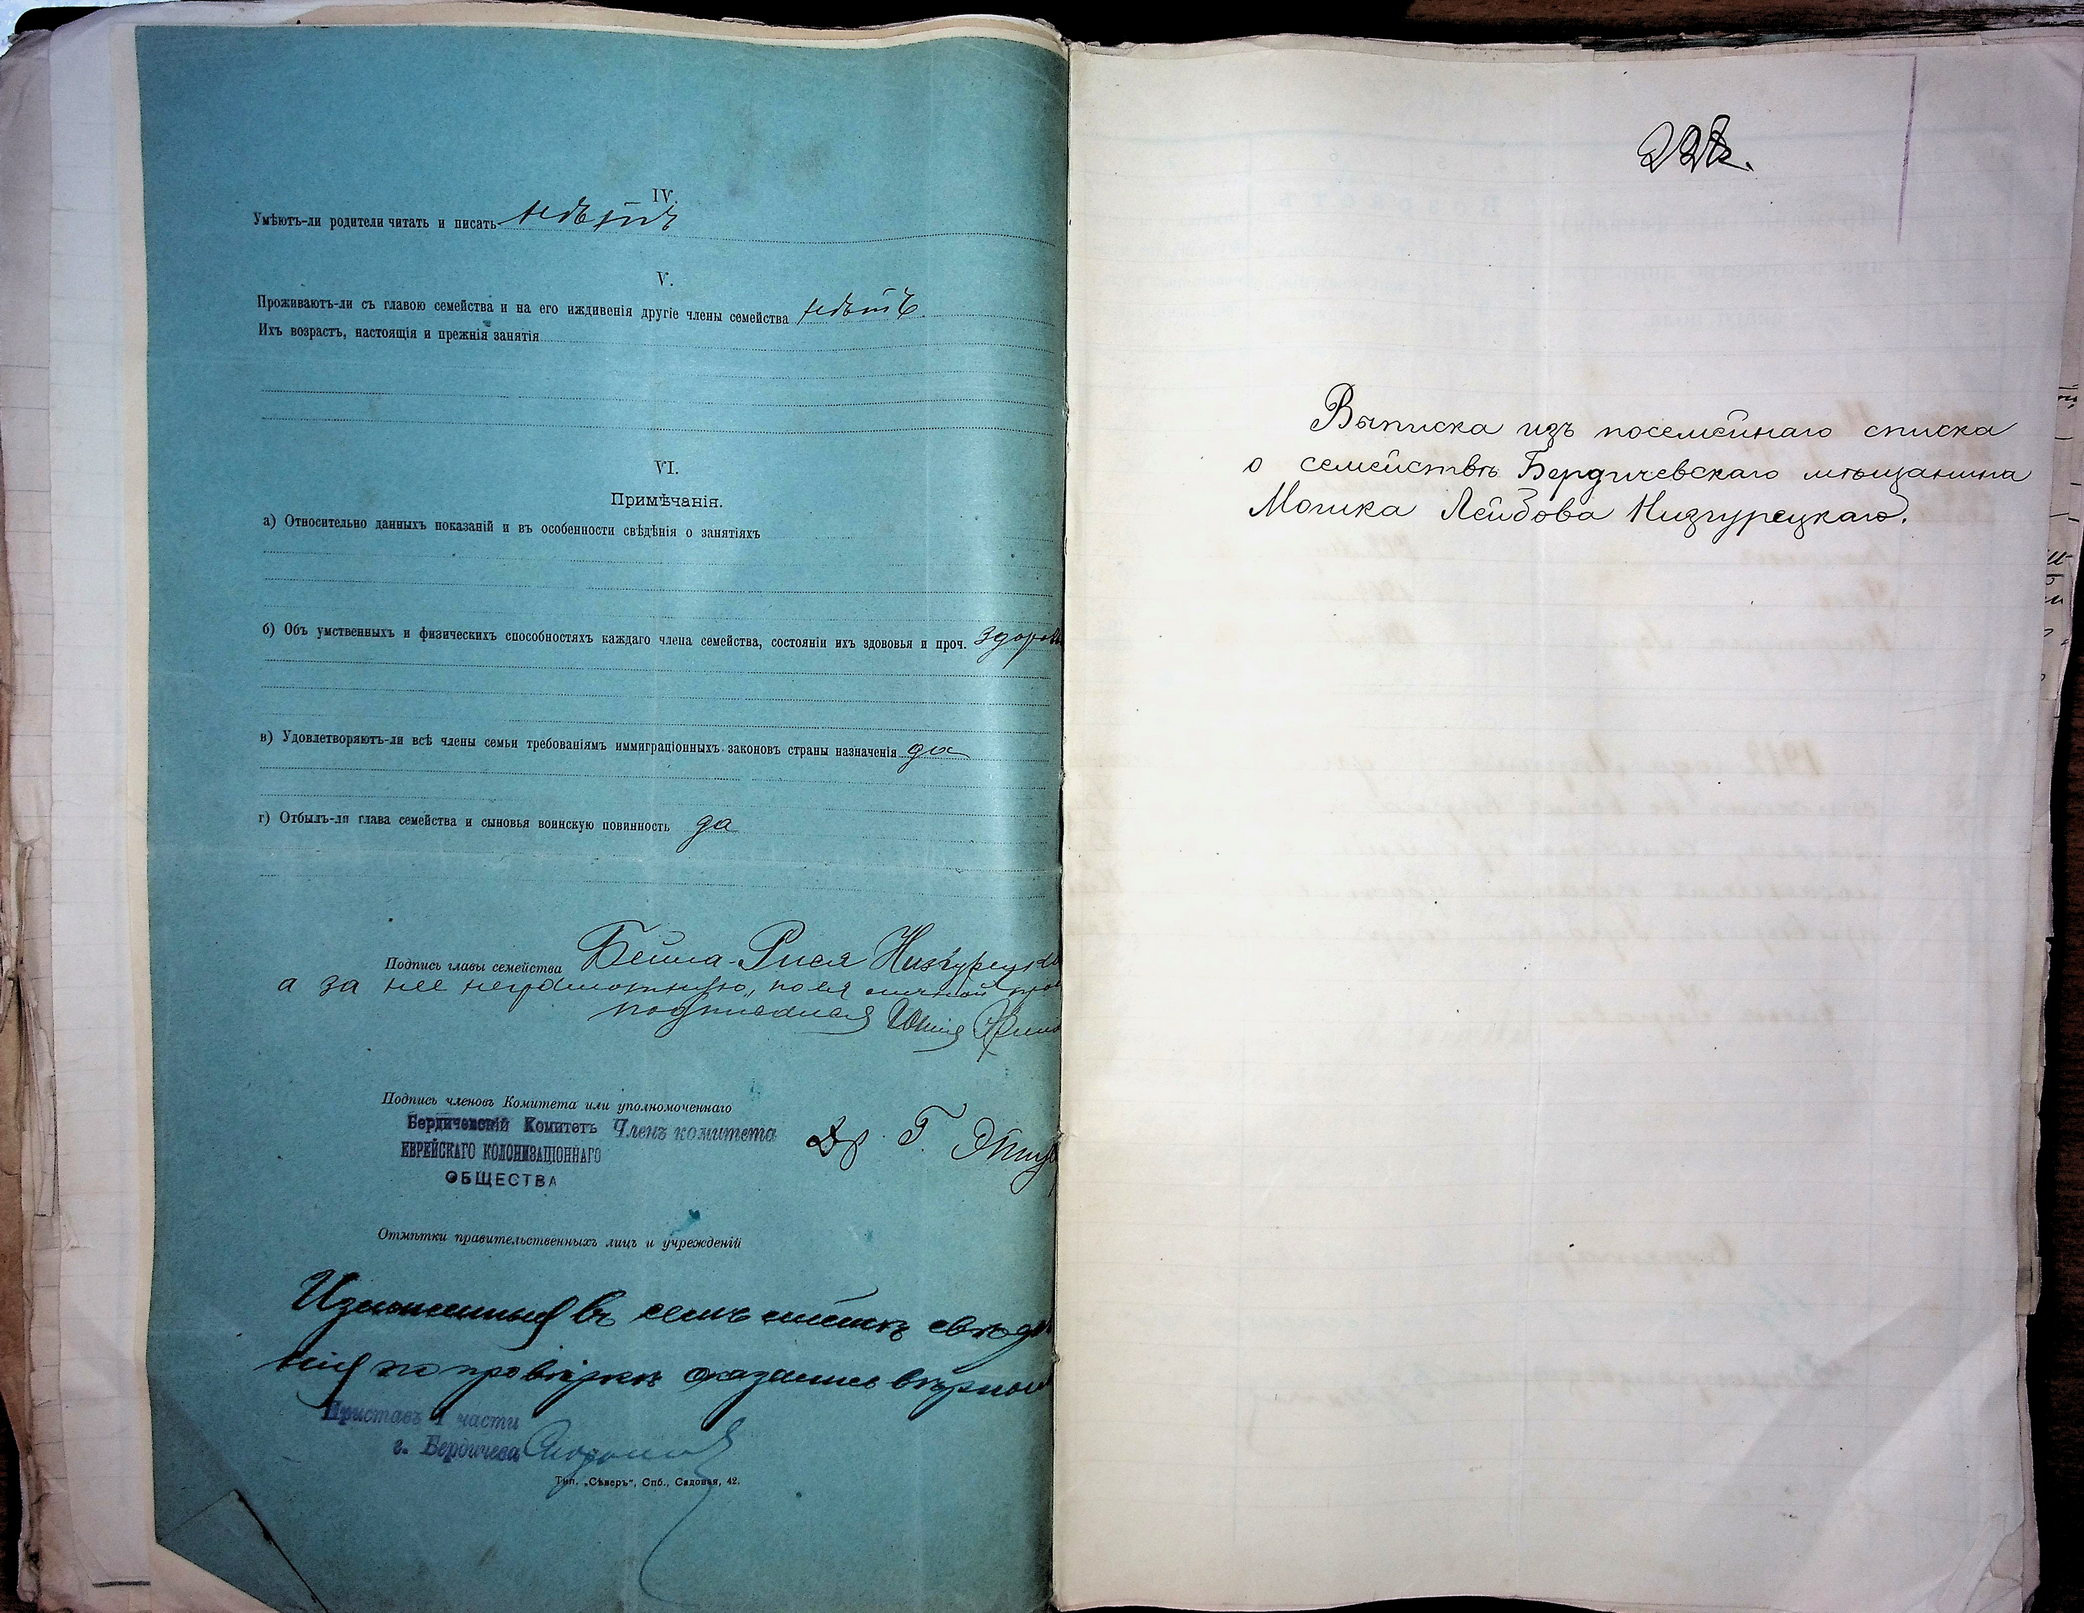 IV.
Умѣютъ-ли родители читать и писать нѣтъ
V.
Проживаютъ-ли съ главою семейства и на его иждивенія другіе члены семейства нѣтъ
Ихъ возрастъ, настоящія и прежнія занятія
VI.
Примѣчанія.
а) Относительно данныхъ показаній и въ особенности свѣдѣнія о занятіяхъ
б) Объ умственныхъ и физическихъ способностяхъ каждаго члена семейства, состояніи ихъ здововья и проч. здоровы
в) Удовлетворяютъ-ли всѣ члены семьи требованіямъ иммиграціонныхъ законовъ страны назначенія да
г) Отбылъ-ли глава семейства и сыновья воинскую повинность да
Подпись главы семейства Бейла-Рися Низгурецка
а за нее неграмотную, по ея личной
подписался
Подпись членовъ Комитета или уполномоченнаго
Бердичевскій Комитетъ Членъ комитета
ЕВРЕЙСКАГО КОЛОНИЗАЦІОННАГО
ОБЩЕСТВА
Др. Г.
Отмѣтки правительственныхъ лицъ и учрежденій
Изложенныя въ семъ листѣ свѣдѣ
нія по провѣркѣ оказались вѣрными
Приставъ 1 части
г. Бердичева
Тип. „Сѣверъ", Спб., Садовая, 42.
Выписка изъ посемейнаго списка
о семействѣ Бердичевскаго мѣщанина
Мошка Лейбова Низгурецкаго.